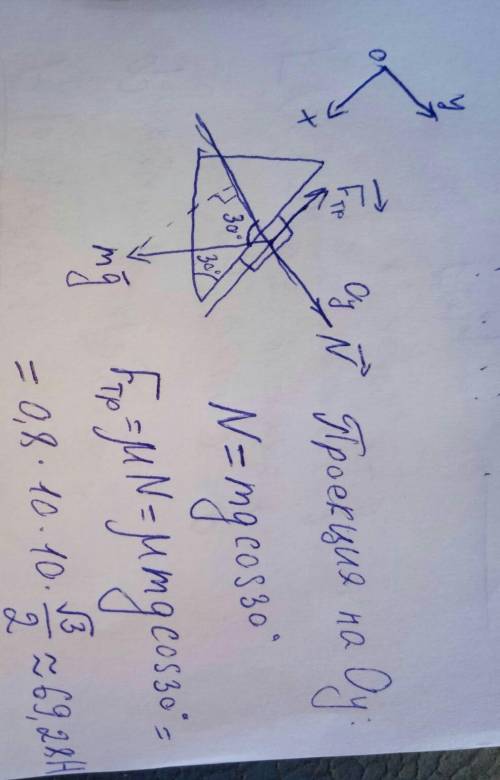 O
y
x
Fтр
N
Oy
30°
30°
mg
Проекция на Oy:
N = mg cos30°
Fтр = μN = μmg cos30° =
= 0,8 · 10 · 10 · √3/2 ≈ 69,28Н